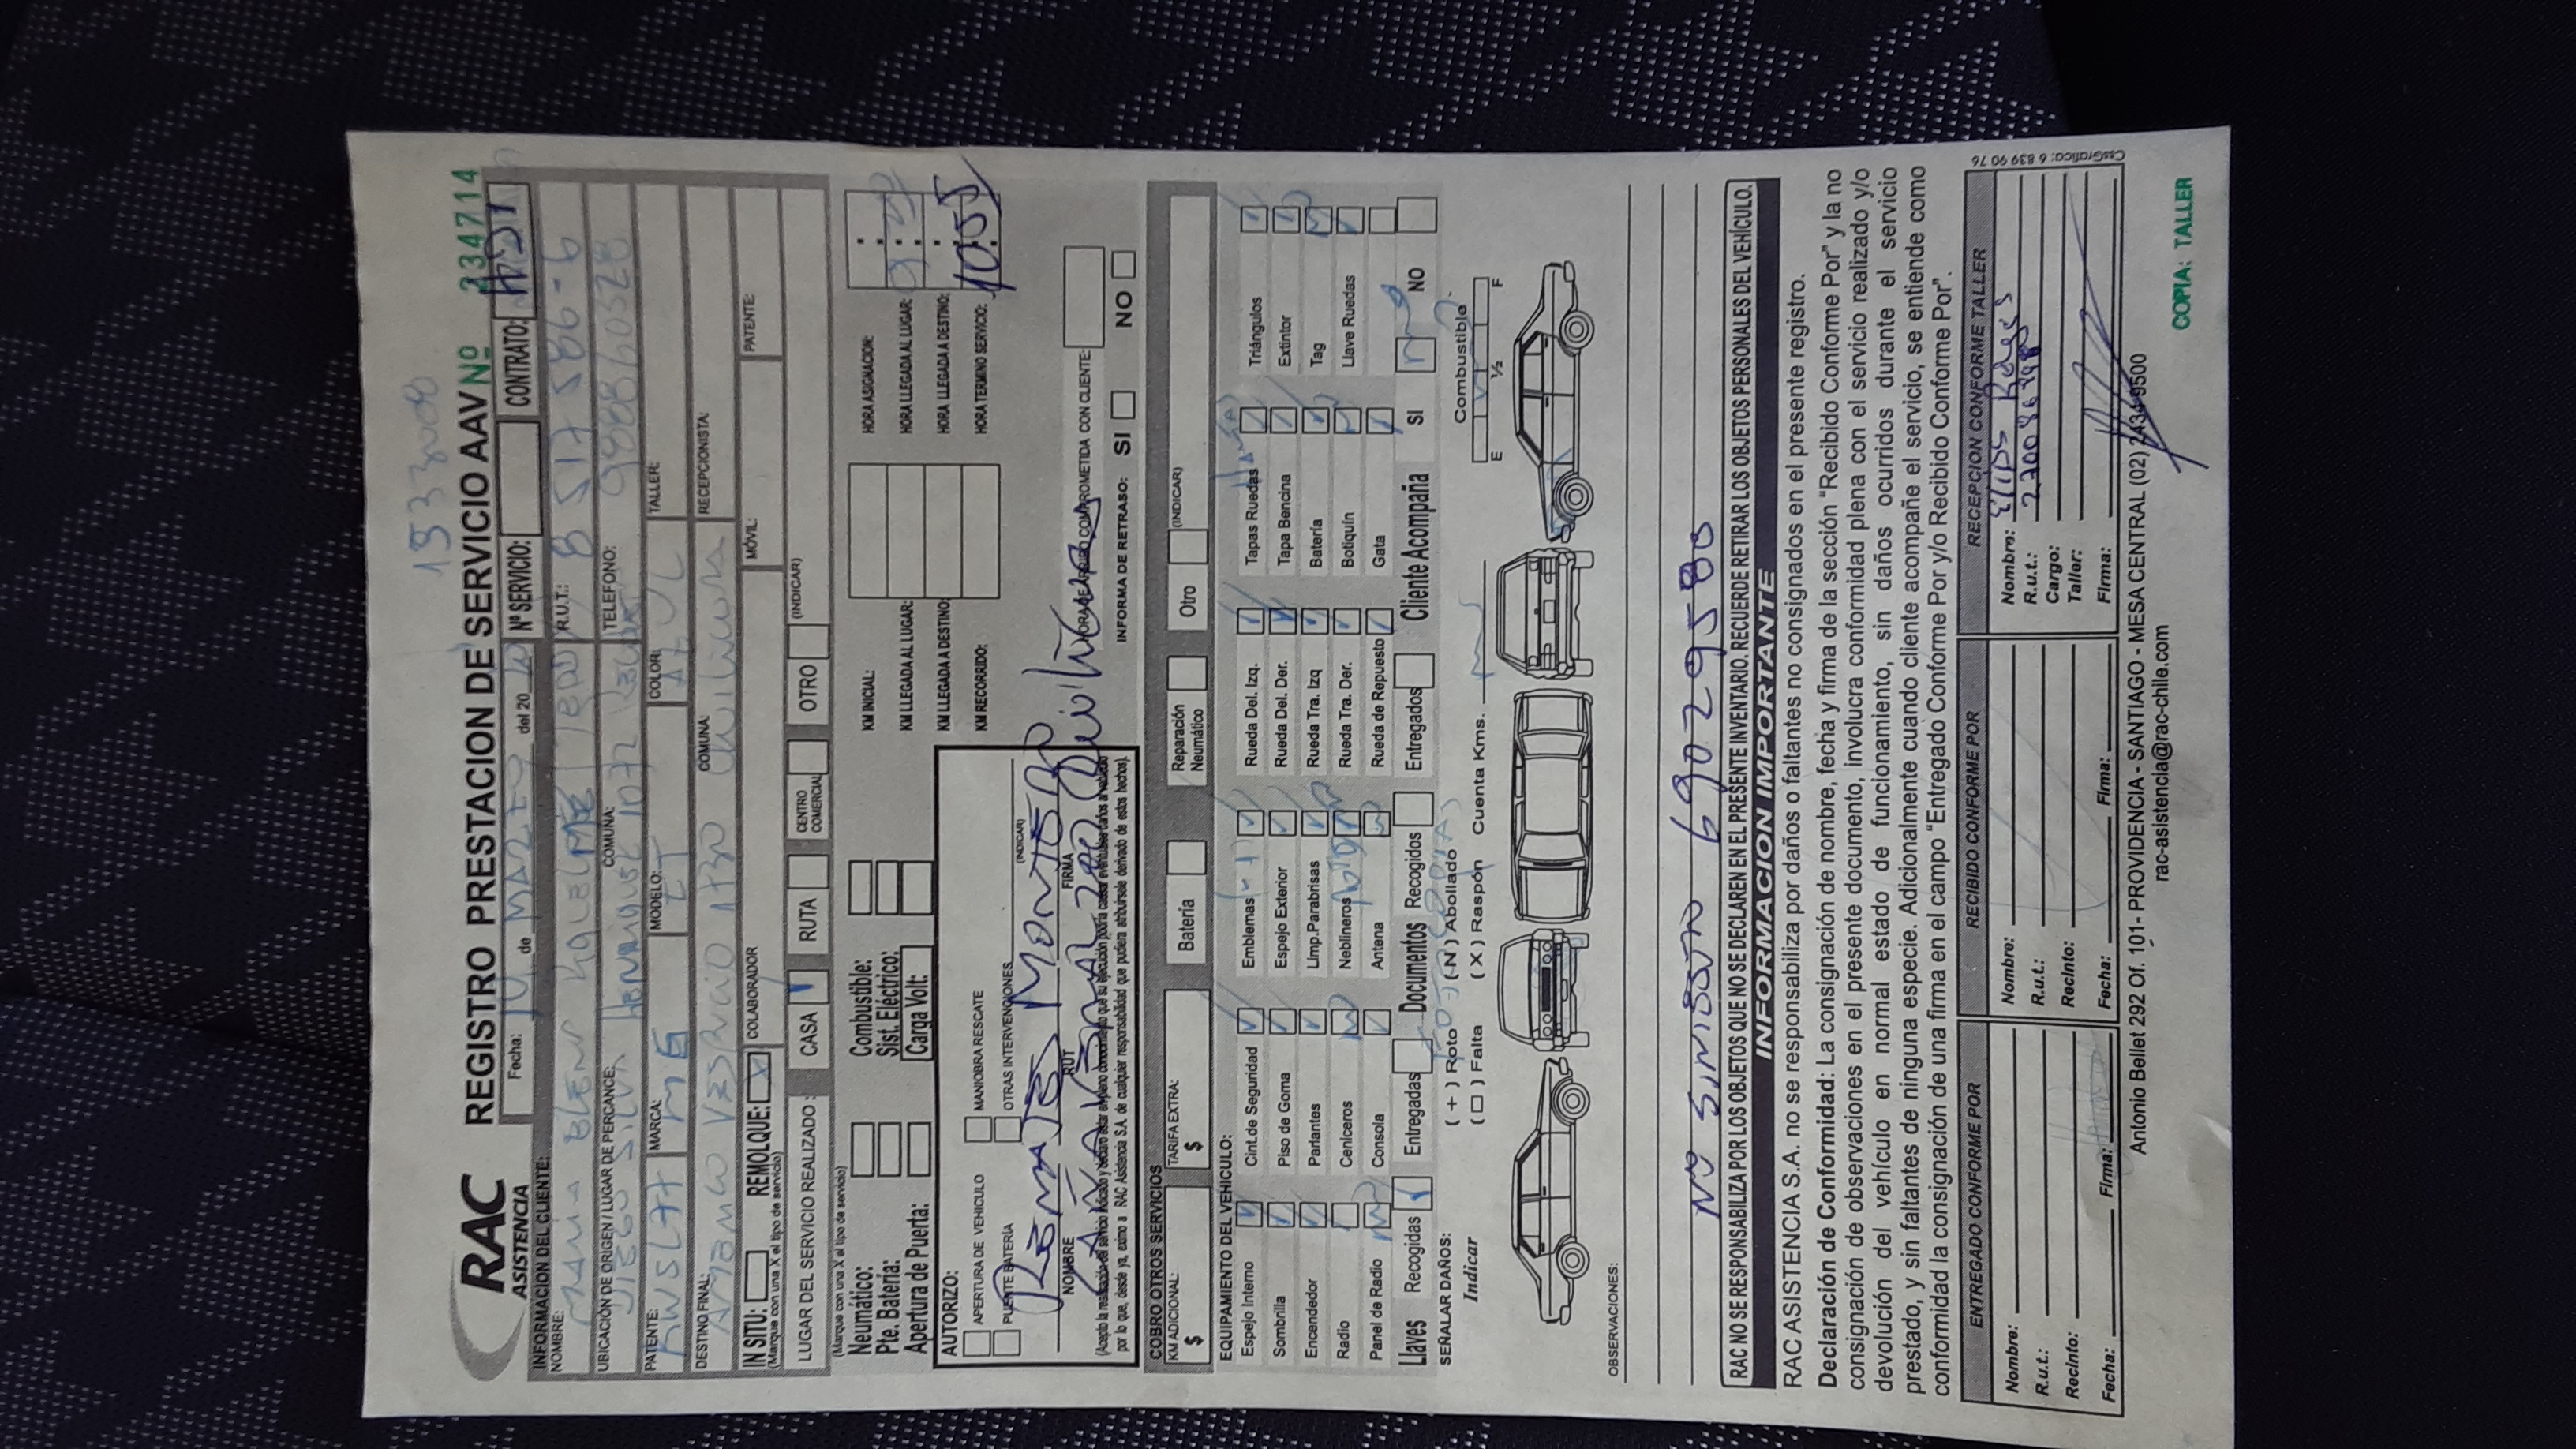 1533008
RAC
ASISTENCIA
REGISTRO PRESTACION DE SERVICIO AAV Nº 234714
Fecha: de MARZO del 20 Nº SERVICIO: CONTRATO:
INFORMACION DEL CLIENTE:
NOMBRE: R.U.T.: 8 517 586-6
UBICACIÓN DE ORIGEN / LUGAR DE PERCANCE: DIEGO SILVA COMUNA: TELEFONO: 988860328
PATENTE: MARCA: MG MODELO: COLOR: AZUL TALLER:
DESTINO FINAL: AMERICO VESPUCIO 1730 COMUNA: Quilicura RECEPCIONISTA:
IN SITU: REMOLQUE: X COLABORADOR MÓVIL: PATENTE:
(Marque con una X el tipo de servicio)
LUGAR DEL SERVICIO REALIZADO: CASA RUTA CENTRO COMERCIAL OTRO (INDICAR)
(Marque con una X el tipo de servicio)
Neumático: Combustible: KM INICIAL: HORA ASIGNACION:
Pte. Batería: Sist. Eléctrico: KM LLEGADA AL LUGAR: HORA LLEGADA AL LUGAR:
Apertura de Puerta: Carga Volt: KM LLEGADA A DESTINO: HORA LLEGADA A DESTINO:
KM RECORRIDO: HORA TERMINO SERVICIO: 10:55
AUTORIZO:
APERTURA DE VEHICULO MANIOBRA RESCATE
PUENTE BATERÍA OTRAS INTERVENCIONES (INDICAR)
MONTERO
NOMBRE RUT FIRMA
Quilicura
(Acepto la realización del servicio indicado y declaro estar en pleno conocimiento que su ejecución podría causar eventuales daños al vehículo
por lo que, desde ya, eximo a RAC Asistencia S.A. de cualquier responsabilidad que pudiera atribuirsele derivado de estos hechos).
HORA DE ARRIBO COMPROMETIDA CON CLIENTE:
INFORMA DE RETRASO: SI NO
COBRO OTROS SERVICIOS
KM ADICIONAL: $ TARIFA EXTRA: $ Batería Reparación Neumático Otro (INDICAR)
EQUIPAMIENTO DEL VEHICULO:
Espejo Interno Cint.de Seguridad Emblemas Rueda Del. Izq. Tapas Ruedas Triángulos
Sombrilla Piso de Goma Espejo Exterior Rueda Del. Der. Tapa Bencina Extintor
Encendedor Parlantes Limp.Parabrisas Rueda Tra. Izq Batería Tag
Radio Ceniceros Neblineros Rueda Tra. Der. Botiquín Llave Ruedas
Panel de Radio Consola Antena Rueda de Repuesto Gata
Llaves Recogidas Entregadas Documentos Recogidos Entregados Cliente Acompaña SI NO
SEÑALAR DAÑOS: ( + ) Roto ( N ) Abollado
Indicar ( □ ) Falta ( X ) Raspón Cuenta Kms. Combustible
E ½ F
OBSERVACIONES:
Nº SiNiESTRO 69029580
RAC NO SE RESPONSABILIZA POR LOS OBJETOS QUE NO SE DECLAREN EN EL PRESENTE INVENTARIO. RECUERDE RETIRAR LOS OBJETOS PERSONALES DEL VEHÍCULO.
INFORMACION IMPORTANTE
RAC ASISTENCIA S.A. no se responsabiliza por daños o faltantes no consignados en el presente registro.
Declaración de Conformidad: La consignación de nombre, fecha y firma de la sección "Recibido Conforme Por" y la no
consignación de observaciones en el presente documento, involucra conformidad plena con el servicio realizado y/o
devolución del vehículo en normal estado de funcionamiento, sin daños ocurridos durante el servicio
prestado, y sin faltantes de ninguna especie. Adicionalmente cuando cliente acompañe el servicio, se entiende como
conformidad la consignación de una firma en el campo "Entregado Conforme Por y/o Recibido Conforme Por".
ENTREGADO CONFORME POR RECIBIDO CONFORME POR RECEPCIÓN CONFORME TALLER
Nombre: Nombre: Nombre:
R.u.t.: R.u.t.: R.u.t.:
Recinto: Recinto: Cargo:
Taller:
Fecha: Firma: Fecha: Firma: Firma:
Antonio Bellet 292 Of. 101- PROVIDENCIA - SANTIAGO - MESA CENTRAL (02) 2434 9500
rac-asistencia@rac-chile.com
COPIA: TALLER
CssGrafica: 6 839 90 76